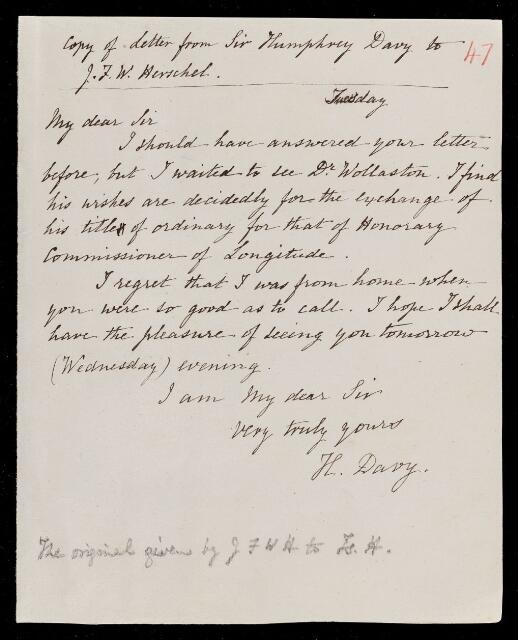 Copy of Letter from Sir Humphrey Davy to
J. F. W. Herschel.
47
Tuesday
My dear Sir
I should have answered your letter
before, but I waited to see Dr Wollaston. I find
his wishes are decidedly for the exchange of
his title of ordinary for that of Honorary
Commissioner of Longitude.
I regret that I was from home when
you were so good as to call. I hope I shall
have the pleasure of seeing you tomorrow
(Wednesday) evening.
I am My dear Sir
Very truly yours
H. Davy.
The original given by J F W H to H.